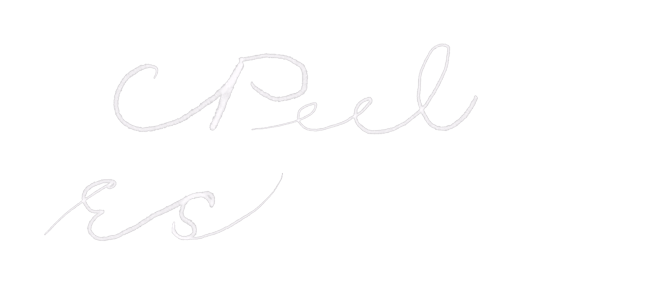 Peel
Es